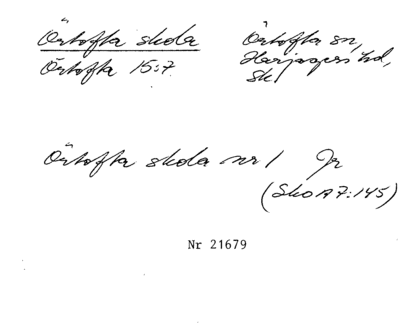 Örtofta skola
Örtofta 15:7
Örtofta sn,
Harjagers hd,
Sk
Örtofta skola nr 1 Jr
(Sko A 7:145)
Nr 21679